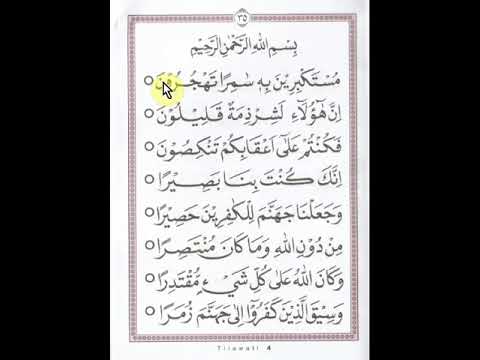 ٣٥
بِسْمِ اللهِ الرَّحْمٰنِ الرَّحِيْمِ
مُسْتَكْبِرِيْنَ بِهٖ سٰمِرًا تَهْجُرُوْنَ
اِنَّ هٰٓؤُلَآءِ لَشِرْذِمَةٌ قَلِيْلُوْنَ
فَكُنْتُمْ عَلٰٓى اَعْقَابِكُمْ تَنْكِصُوْنَ
اِنَّكَ كُنْتَ بِنَا بَصِيْرًا
وَجَعَلْنَا جَهَنَّمَ لِلْكٰفِرِيْنَ حَصِيْرًا
مِنْ دُوْنِ اللهِ وَمَا كَانَ مُنْتَصِرًا
وَكَانَ اللهُ عَلٰى كُلِّ شَيْءٍ مُّقْتَدِرًا
وَسِيْقَ الَّذِيْنَ كَفَرُوْٓا اِلٰى جَهَنَّمَ زُمَرًا
Tilawati 4